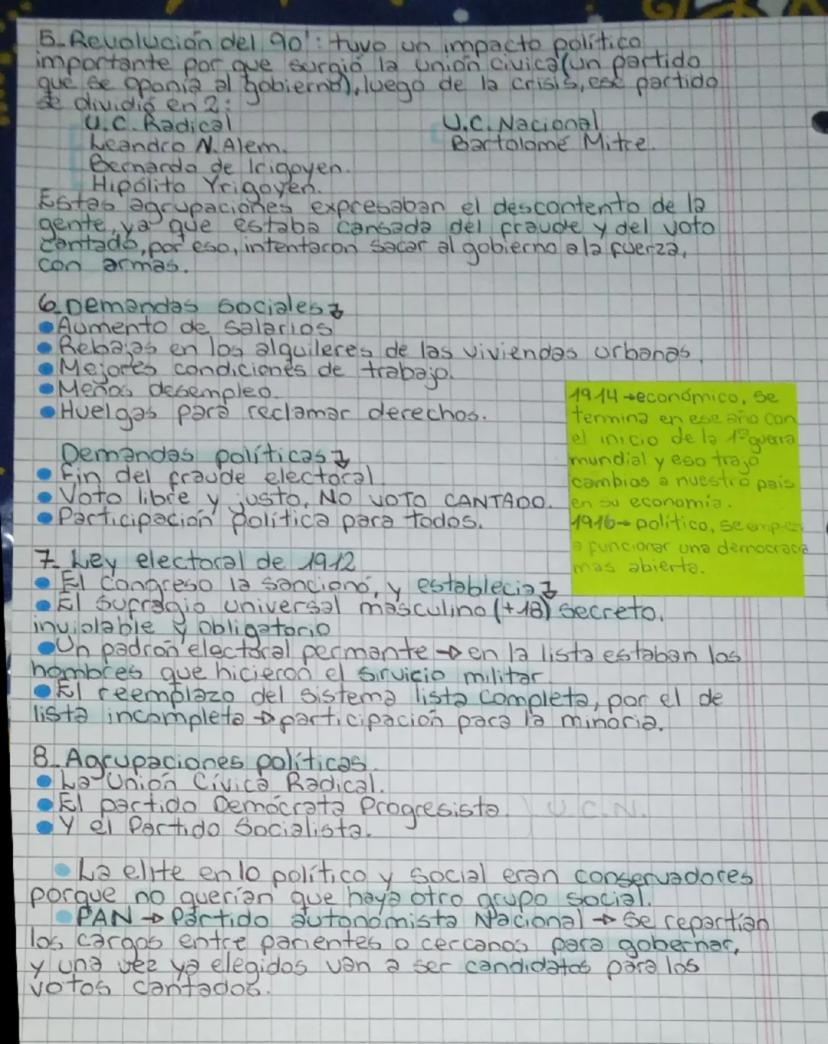 5_Revolución del 90': tuvo un impacto político
importante por que surgió la unión cívica (un partido
que se oponía al gobierno), luego de la crisis, ese partido
se dividió en 2:
U.C. Radical
Leandro N. Alem.
Bernardo de Irigoyen.
Hipólito Yrigoyen.
U.C. Nacional
Bartolomé Mitre.
Estas agrupaciones expresaban el descontento de la
gente, ya que estaba cansada del fraude y del voto
cantado, por eso, intentaron sacar al gobierno a la fuerza,
con armas.
6_Demandas sociales↴
•Aumento de salarios
•Rebajas en los alquileres de las viviendas urbanas.
•Mejores condiciones de trabajo.
•Menos desempleo.
•Huelgas para reclamar derechos.
Demandas políticas↴
•Fin del fraude electoral
•Voto libre y justo, NO VOTO CANTADO.
•Participación política para todos.
1914→económico, se
termina en ese año con
el inicio de la 1º guerra
mundial y eso trajo
cambios a nuestro país
en su economía.
1916→político, se
a funcionar una democracia
mas abierta.
7_Ley electoral de 1912
•El Congreso la sancionó, y establecía↴
•El sufragio universal masculino (+18) secreto,
inviolable y obligatorio
•Un padrón electoral permante → en la lista estaban los
hombres que hicieron el sirvicio militar
•El reemplazo del sistema lista completa, por el de
lista incompleta → participación para la minoría.
8_Agrupaciones políticas.
•La Unión Cívica Radical.
•El partido Demócrata Progresista. U.C.N.
•Y el Partido Socialista.
•La elite en lo político y social eran conservadores
porque no querían que haya otro grupo social.
•PAN → Partido autonomista Nacional → Se repartían
los cargos entre parientes o cercanos para gobernar,
y una vez ya elegidos van a ser candidatos para los
votos cantados.